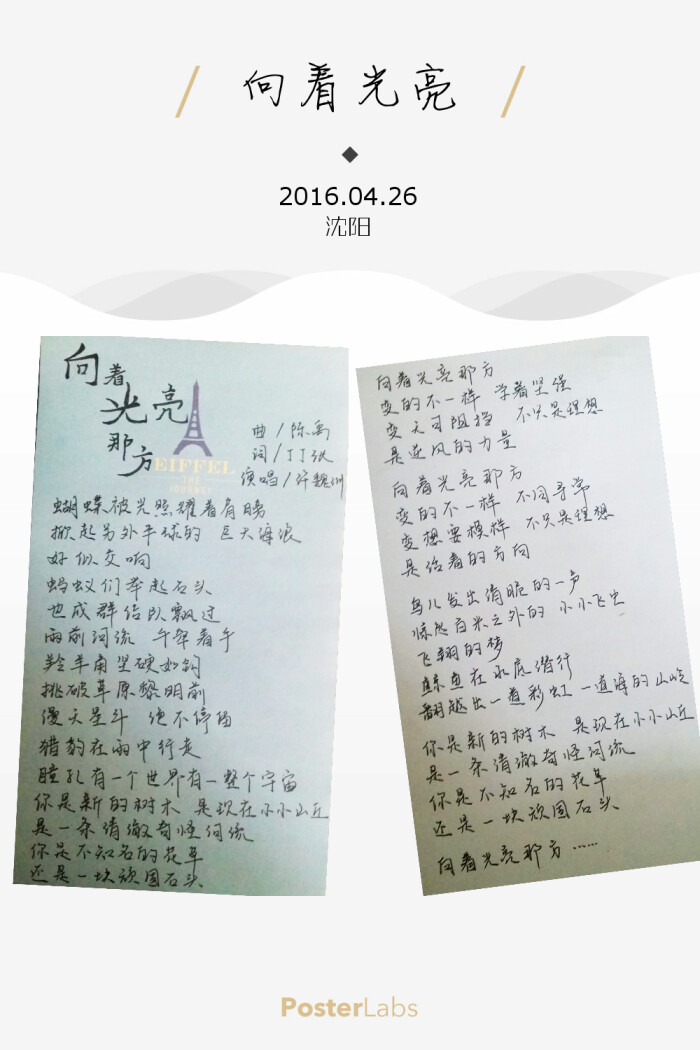 / 向着光亮 /
2016.04.26
沈阳
向着
光亮
那方
EIFFEL
曲/陈禹
词/丁丁张
演唱/许魏洲
蝴蝶被光照耀着肩膀
掀起另外半球的 巨大海浪
好似交响
蚂蚁们举起石头
也成群结队飘过
雨前河流 手牵着手
羚羊角坚硬如钩
挑破草原黎明前
漫天星斗 绝不停留
猎豹在雨中行走
瞳孔有一个世界有一整个宇宙
你是新的树木 是现在小小山丘
是一条清澈奇怪河流
你是不知名的花草
还是一块顽固石头
向着光亮那方
变的不一样 学着坚强
变无可阻挡 不只是理想
是逆风的力量
向着光亮那方
变的不一样 不同寻常
变想要模样 不只是理想
是给看的方向
鸟儿发出清脆的一声
惊起百米之外的 小小飞虫
飞翔的梦
鲸鱼在水底潜行
翻越出一道彩虹 一道海的山屹
你是新的树木 是现在小小山丘
是一条清澈奇怪河流
你是不知名的花草
还是一块顽固石头
向着光亮那方……
PosterLabs